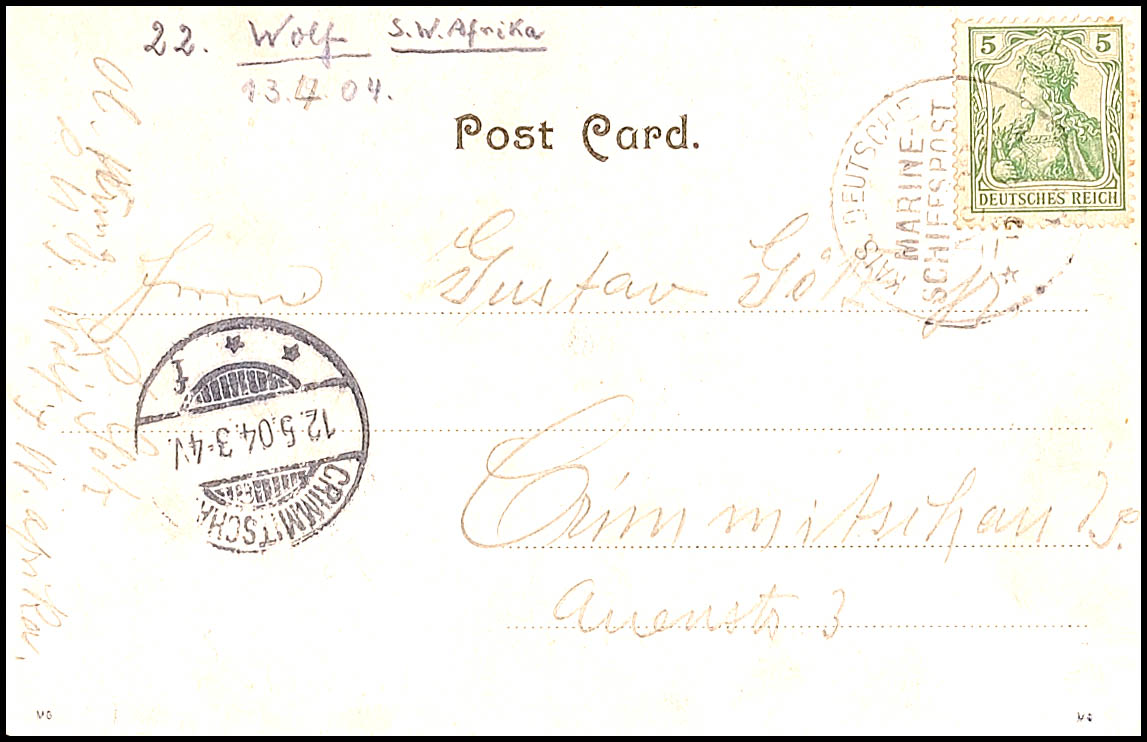 22. Wolf S.W. Afrika
13.4.04.
5 5
DEUTSCHES REICH
Post Card.
KAIS. DEUTSCHE
MARINE-
SCHIFFSPOST
Herrn Gustav
Crimmitschau i/S.
Auenstr 3
CRIMMITSCHA
12.5.04.3-4V.
f
W. Afrika.